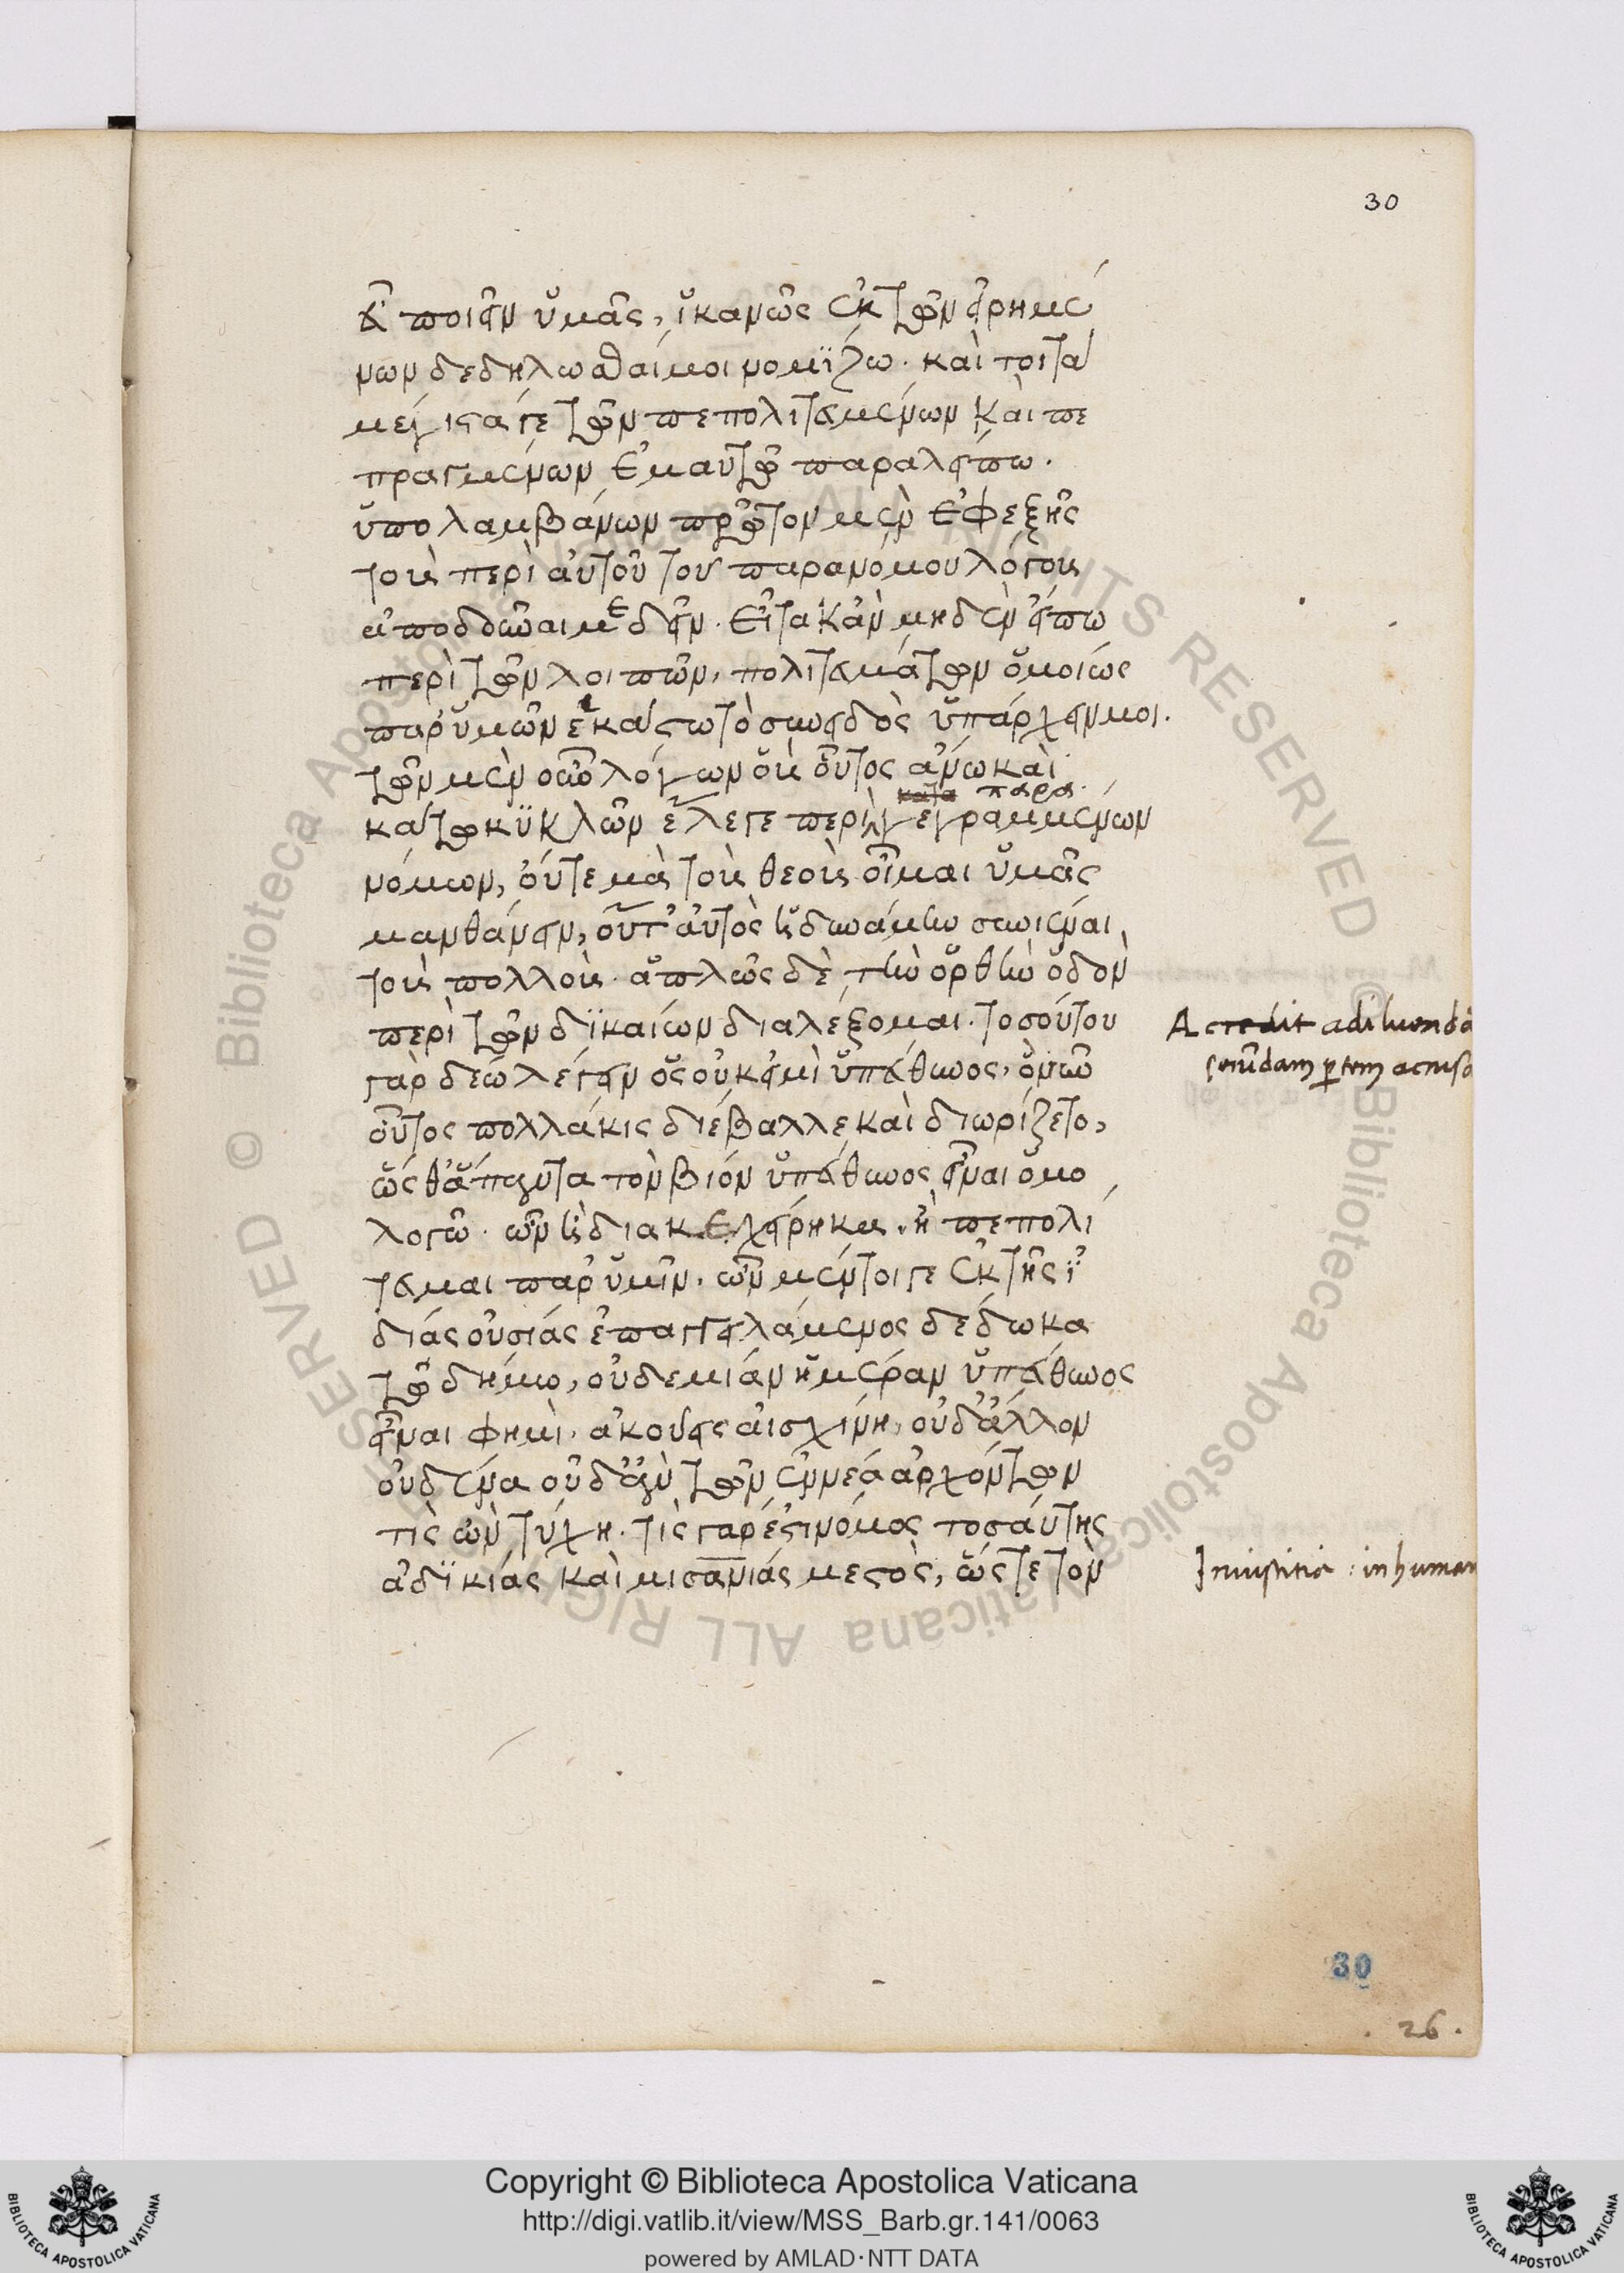 30
εὖ ποιεῖν ὑμᾶς, ἱκανῶς ἐκ τῶν εἰρημέ
νων δεδηλῶσθαί μοι νομίζω. καὶ τοι τὰ
μέγιστά γε τῶν πεπολιτευμένων καὶ πε
πραγμένων ἐμαυτῷ παραλείπω.
ὑπολαμβάνων πρῶτον μὲν ἐφεξῆς
τοὺς περὶ αὐτοῦ τοῦ παρανόμου λόγους
ἀποδοῦναί με δεῖν. εἶτα κἂν μηδὲν εἴπω
περὶ τῶν λοιπῶν, πολιτευμάτων ὁμοίως
παρ' ὑμῶν ἑκάστῳ τὸ συνειδὸς ὑπάρχειν μοι.
τῶν μὲν οὖν λόγων οὓς οὗτος ἄνω καὶ
κατα παρα
κάτω κυκλῶν ἔλεγε περὶ γεγραμμένων
νόμων, οὔτε μὰ τοὺς θεοὺς οἶμαι ὑμᾶς
μανθάνειν, οὔτ' αὐτὸς ἐδυνάμην συνιέναι
τοὺς πολλούς. ἁπλῶς δὲ τὴν ὀρθὴν ὁδὸν
περὶ τῶν δικαίων διαλέξομαι. τοσούτου
γὰρ δέω λέγειν ὡς οὐκ εἰμὶ ὑπεύθυνος, ὃ νῦν
οὗτος πολλάκις διέβαλλε καὶ διωρίζετο,
ὥσθ' ἅπαντα τὸν βίον ὑπεύθυνος εἶναι ὁμο
λογῶ. ὧν ἢ διακεχείρηκα, ἢ πεπολί
τευμαι παρ' ὑμῖν. ὧν μέντοι γε ἐκ τῆς ἰ
δίας οὐσίας ἐπαγγειλάμενος δέδωκα
τῷ δήμῳ, οὐδεμίαν ἡμέραν ὑπεύθυνος
εἶναι φημί. ἀκούεις αἰσχίνη, οὐδ' ἄλλον
οὐδένα οὐδ' ἂν τῶν ἐννέα ἀρχόντων
τὶς ὢν τύχῃ. τίς γάρ ἐστι νόμος τοσαύτης
ἀδικίας καὶ μισανιάς μεστὸς, ὥστε τὸν
Acredit adiluenda
secundam partem acusa
Iniustitia : inhuman
30
26.
Copyright © Biblioteca Apostolica Vaticana
http://digi.vatlib.it/view/MSS_Barb.gr.141/0063
powered by AMLAD·NTT DATA